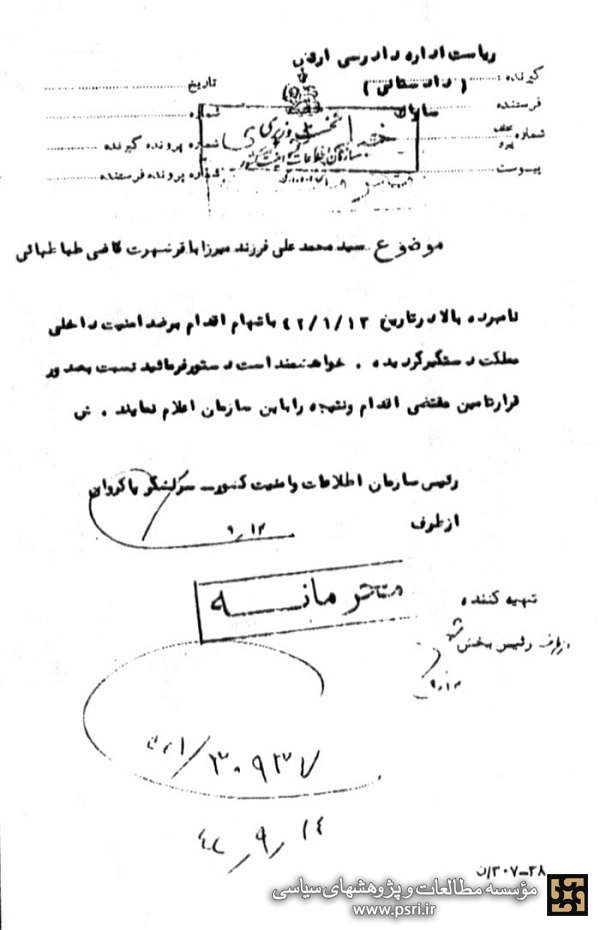 ریاست اداره دادرسی ارتش
(دادستانی)
گیرنده :
فرستنده
شماره
پیوست
تاریخ
شماره
شماره پرونده گیرنده
شماره پرونده فرستنده
نخست وزیری
سازمان اطلاعات و امنیت کشور
موضوع سید محمد علی فرزند میرزا باقر شهرت قاضی طباطبائی
نامبرده بالا در تاریخ ۴۲/۹/۱۳ باتهام اقدام برضد امنیت داخلی
مملکت دستگیر گردیده . خواهشمند است دستور فرمائید نسبت بصدور
قرار تامین مقتضی اقدام و نتیجه را باین سازمان اعلام نمایند . ش
رئیس سازمان اطلاعات و امنیت کشور - سرلشگر پاکروان
از طرف
۹/۱۳
محرمانه
تهیه کننده
از طرف رئیس بخش
۳۰۹۳۷
۴۲/۹/۱۴
۳۸-۳۰۷/ن
مؤسسه مطالعات و پژوهشهای سیاسی
www.psri.ir